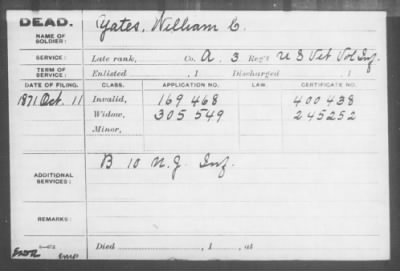 DEAD.
NAME OF SOLDIER: Yates, William C.
SERVICE: Late rank, Co. A, 3 Reg't U S Vet Vol Inf.
TERM OF SERVICE: Enlisted , 1 Discharged , 1
DATE OF FILING. CLASS. APPLICATION NO. LAW. CERTIFICATE NO.
1871 Oct. 11 Invalid, 169 468 400 438
Widow, 305 549 245252
Minor,
ADDITIONAL SERVICES: B 10 N.J. Inf.
REMARKS:
Died , 1 , at